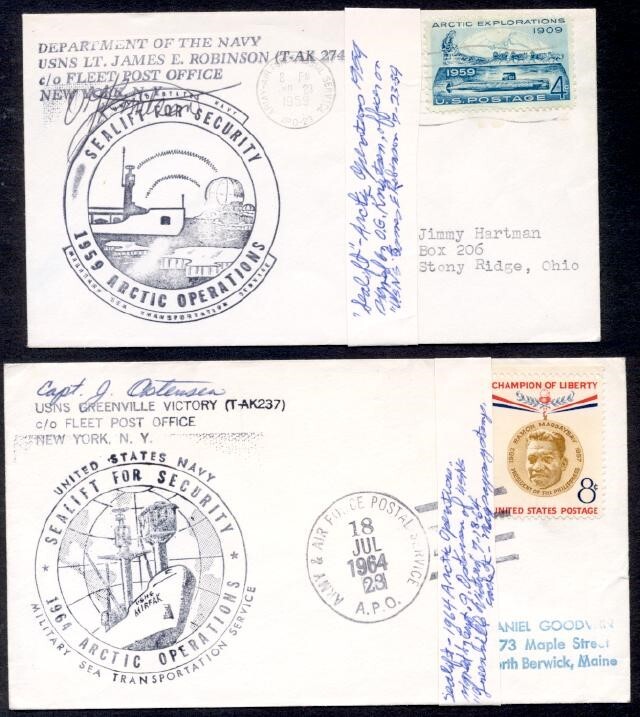 DEPARTMENT OF THE NAVY
USNS LT. JAMES E. ROBINSON (T-AK 274
c/o FLEET POST OFFICE
NEW YORK, N.Y.
UNITED STATES NAVY
SEALIFT FOR SECURITY
1959 ARCTIC OPERATIONS
MILITARY SEA TRANSPORTATION SERVICE
1959
ARCTIC EXPLORATIONS
1909
1959
4¢
U.S. POSTAGE
"Sealift" - Arctic Operations
signed by officer on
"USNS James E. Robinson"
Jimmy Hartman
Box 206
Stony Ridge, Ohio
Capt. J.
USNS GREENVILLE VICTORY (T-AK237)
c/o FLEET POST OFFICE
NEW YORK, N. Y.
UNITED STATES NAVY
SEALIFT FOR SECURITY
USNS
MIRFAK
1964 ARCTIC OPERATIONS
MILITARY SEA TRANSPORTATION SERVICE
ARMY & AIR FORCE POSTAL SERVICE
18
JUL
1964
23
A.P.O.
CHAMPION OF LIBERTY
RAMON MAGSAYSAY
1907 1957
PRESIDENT OF THE PHILIPPINES
8¢
UNITED STATES POSTAGE
Sealift 1964 Arctic Operations
signed by Capt. J. of USNS
Greenville Victory
Magsaysay stamp.
ANIEL GOODWIN
73 Maple Street
orth Berwick, Maine